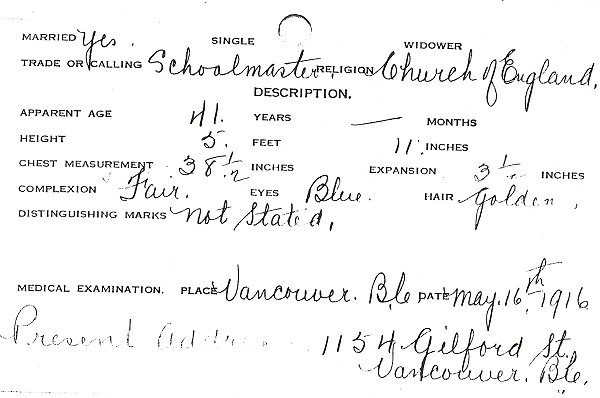 MARRIED Yes. SINGLE WIDOWER
TRADE OR CALLING Schoolmaster. RELIGION Church of England.
DESCRIPTION.
APPARENT AGE 41. YEARS — MONTHS
HEIGHT 5. FEET 11. INCHES
CHEST MEASUREMENT 38 1/2 INCHES EXPANSION 3 1/2 INCHES
COMPLEXION Fair. EYES Blue. HAIR Golden.
DISTINGUISHING MARKS not Stated.
MEDICAL EXAMINATION. PLACE Vancouver. B.C. DATE May. 16th 1916
Present 1154 Gilford St.
Vancouver. B.C.